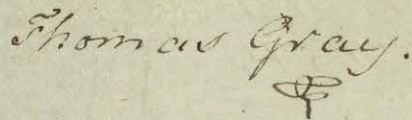 Thomas Gray.